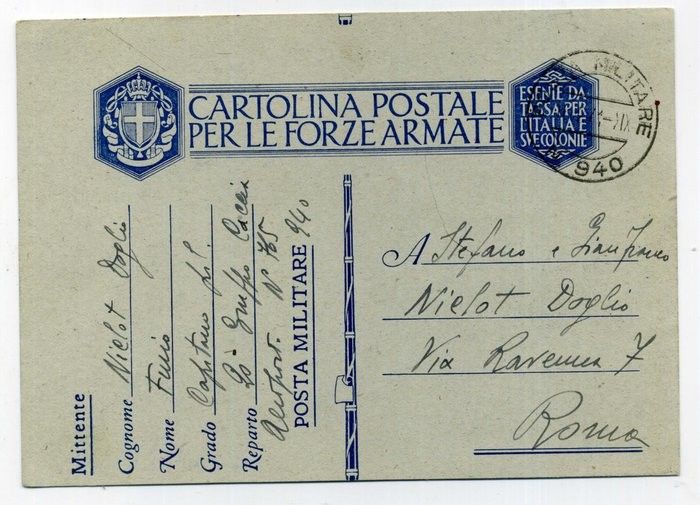 CARTOLINA POSTALE
PER LE FORZE ARMATE
ESENTE DA
TASSA PER
L'ITALIA E
SVE COLONIE
MILITARE
940
Mittente
Cognome Nielot Doglio
Nome Furio
Grado Capitano pil.
Reparto Gruppo Caccia
Aeroport. N° 765
POSTA MILITARE 940
A Stefano e Gianfranco
Nielot Doglio
Via Ravenna 7
Roma